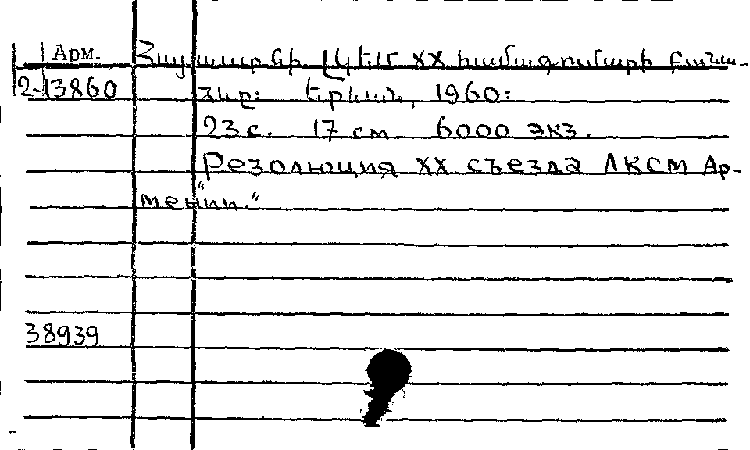 Арм. Հայաստանի ԼԿԵՄ XX համագումարի բանա-
2-13860 ձևը: Երևան, 1960:
23 с. 17 см 6000 экз.
„Резолюция XX съезда ЛКСМ Ар-
мении."
38939